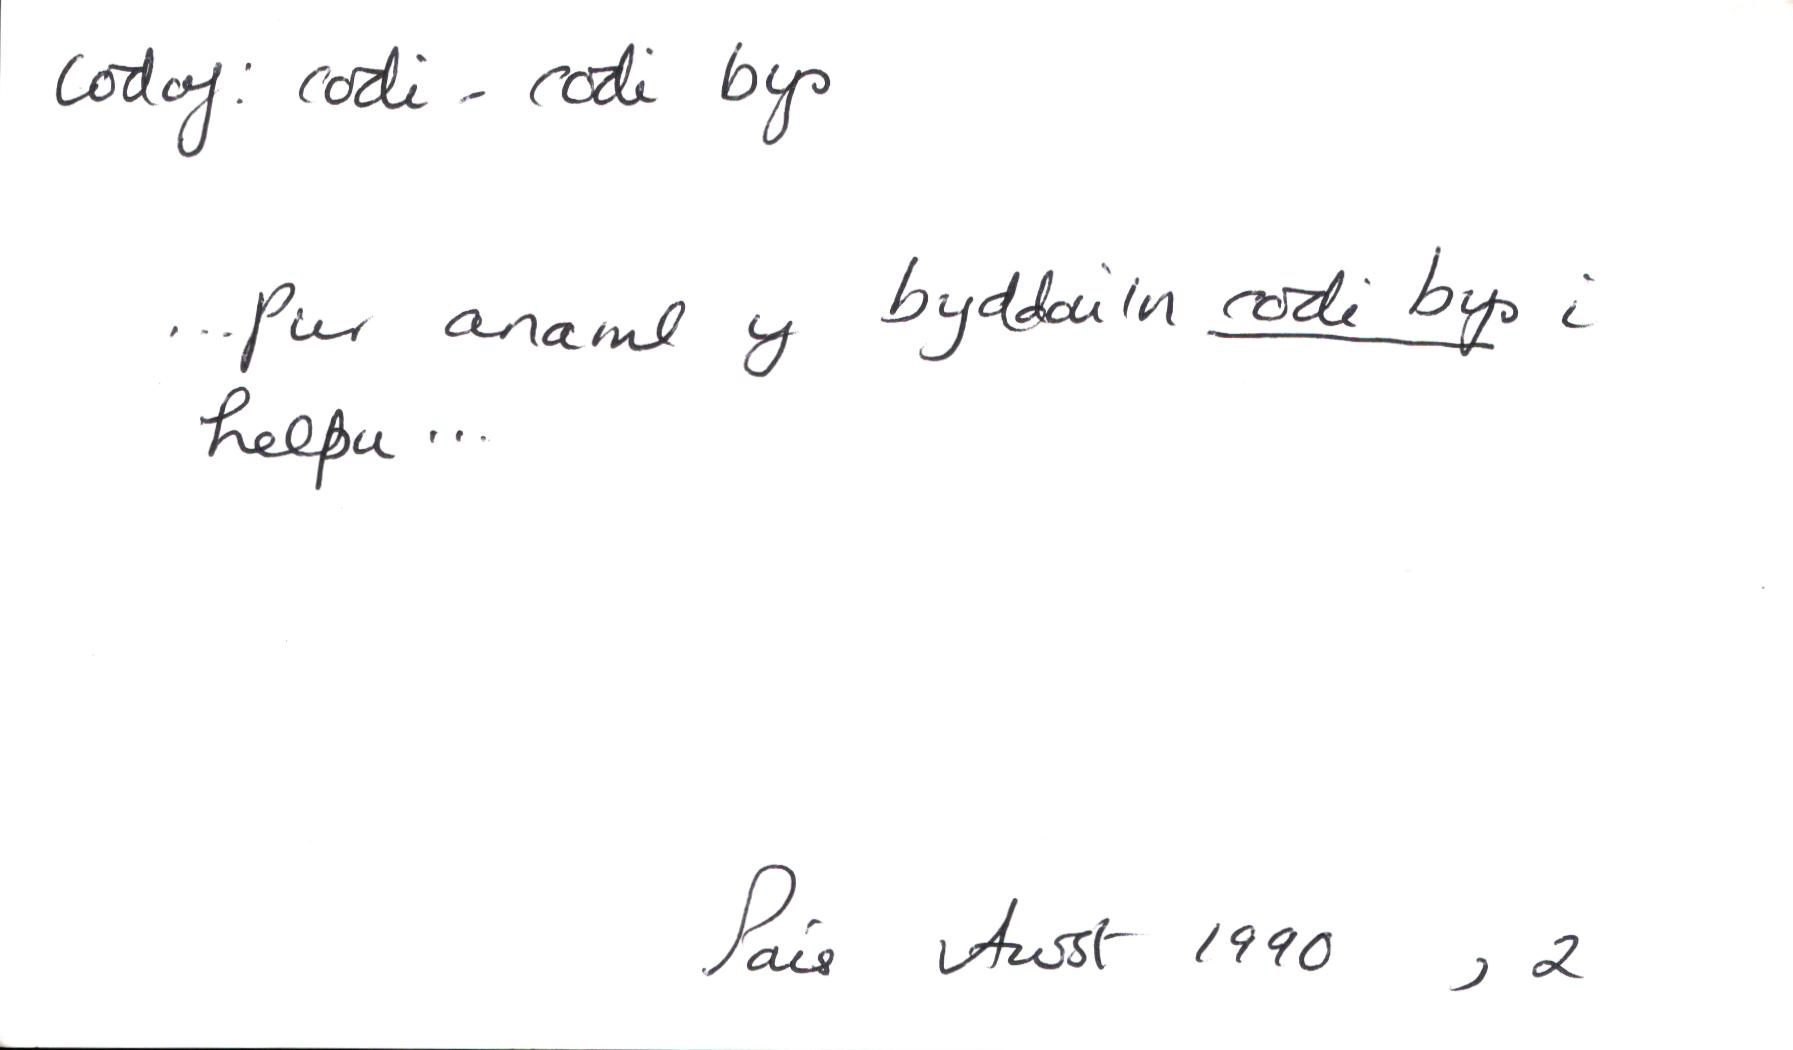 codaf: codi - codi bys
...Pur anaml y byddai'n codi bys i
helpu...
Pais Awst 1990 , 2